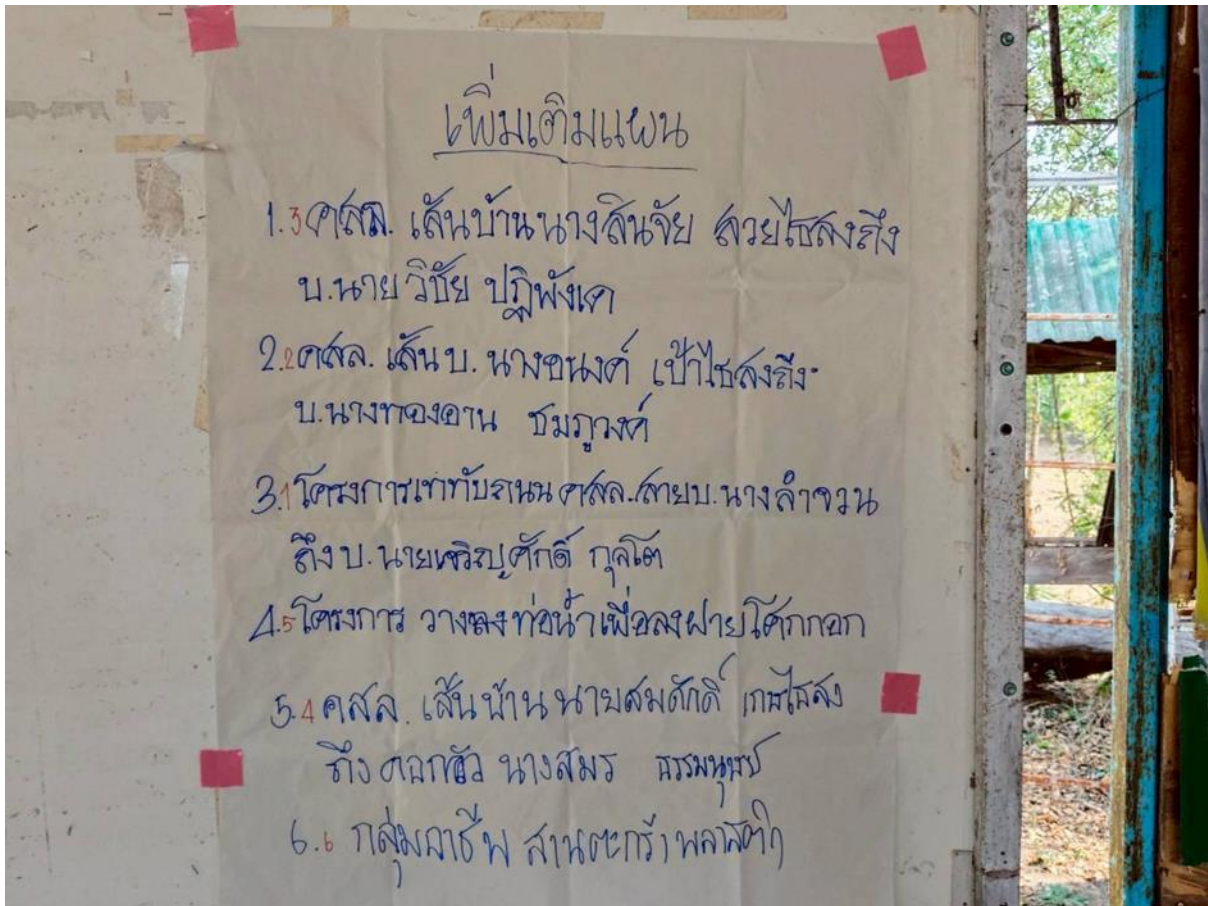 เพิ่มเติมแผน
1.3 คสล. เส้นบ้านนางสินจัย สวยไธสงถึง
บ.นายวิชัย ปฏิพังเค
2.2 คสล. เส้น บ. นางอนงค์ เป้าไธสงถึง
บ.นางทองอาน ชมภูวงค์
3.1 โครงการเททับถนน คสล. สายบ.นางลำจวน
ถึง บ. นายเจริญศักดิ์ กุลโต
4.5 โครงการ วางลงท่อน้ำเพื่อลงฝายโคกกอก
5.4 คสล. เส้นบ้านนายสมศักดิ์ เกษไธสง
ถึง คอกวัว นางสมร
6.6 กลุ่มอาชีพ สานตะกร้าพลาสติก